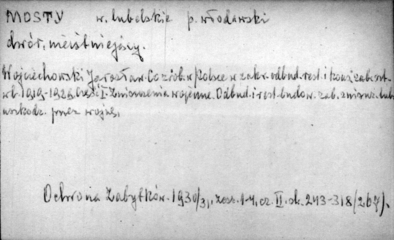 MOSTY w. lubelskie p. włodawski
dwór, nieistniejący.
Wojciechowski Jarosław. Co zrob. w Polsce w zakr. odbud. rest. i konś. zab. szt.
w l. 1919-1929. Część I. Zniszczenia wojenne. Odbud. i rest. budow. zab. zniszcz. lub
uszkodz. przez wojnę.
Ochrona Zabytków. 1930/31, zesz. 1-4, cz. II. sk. 243-318/(264).